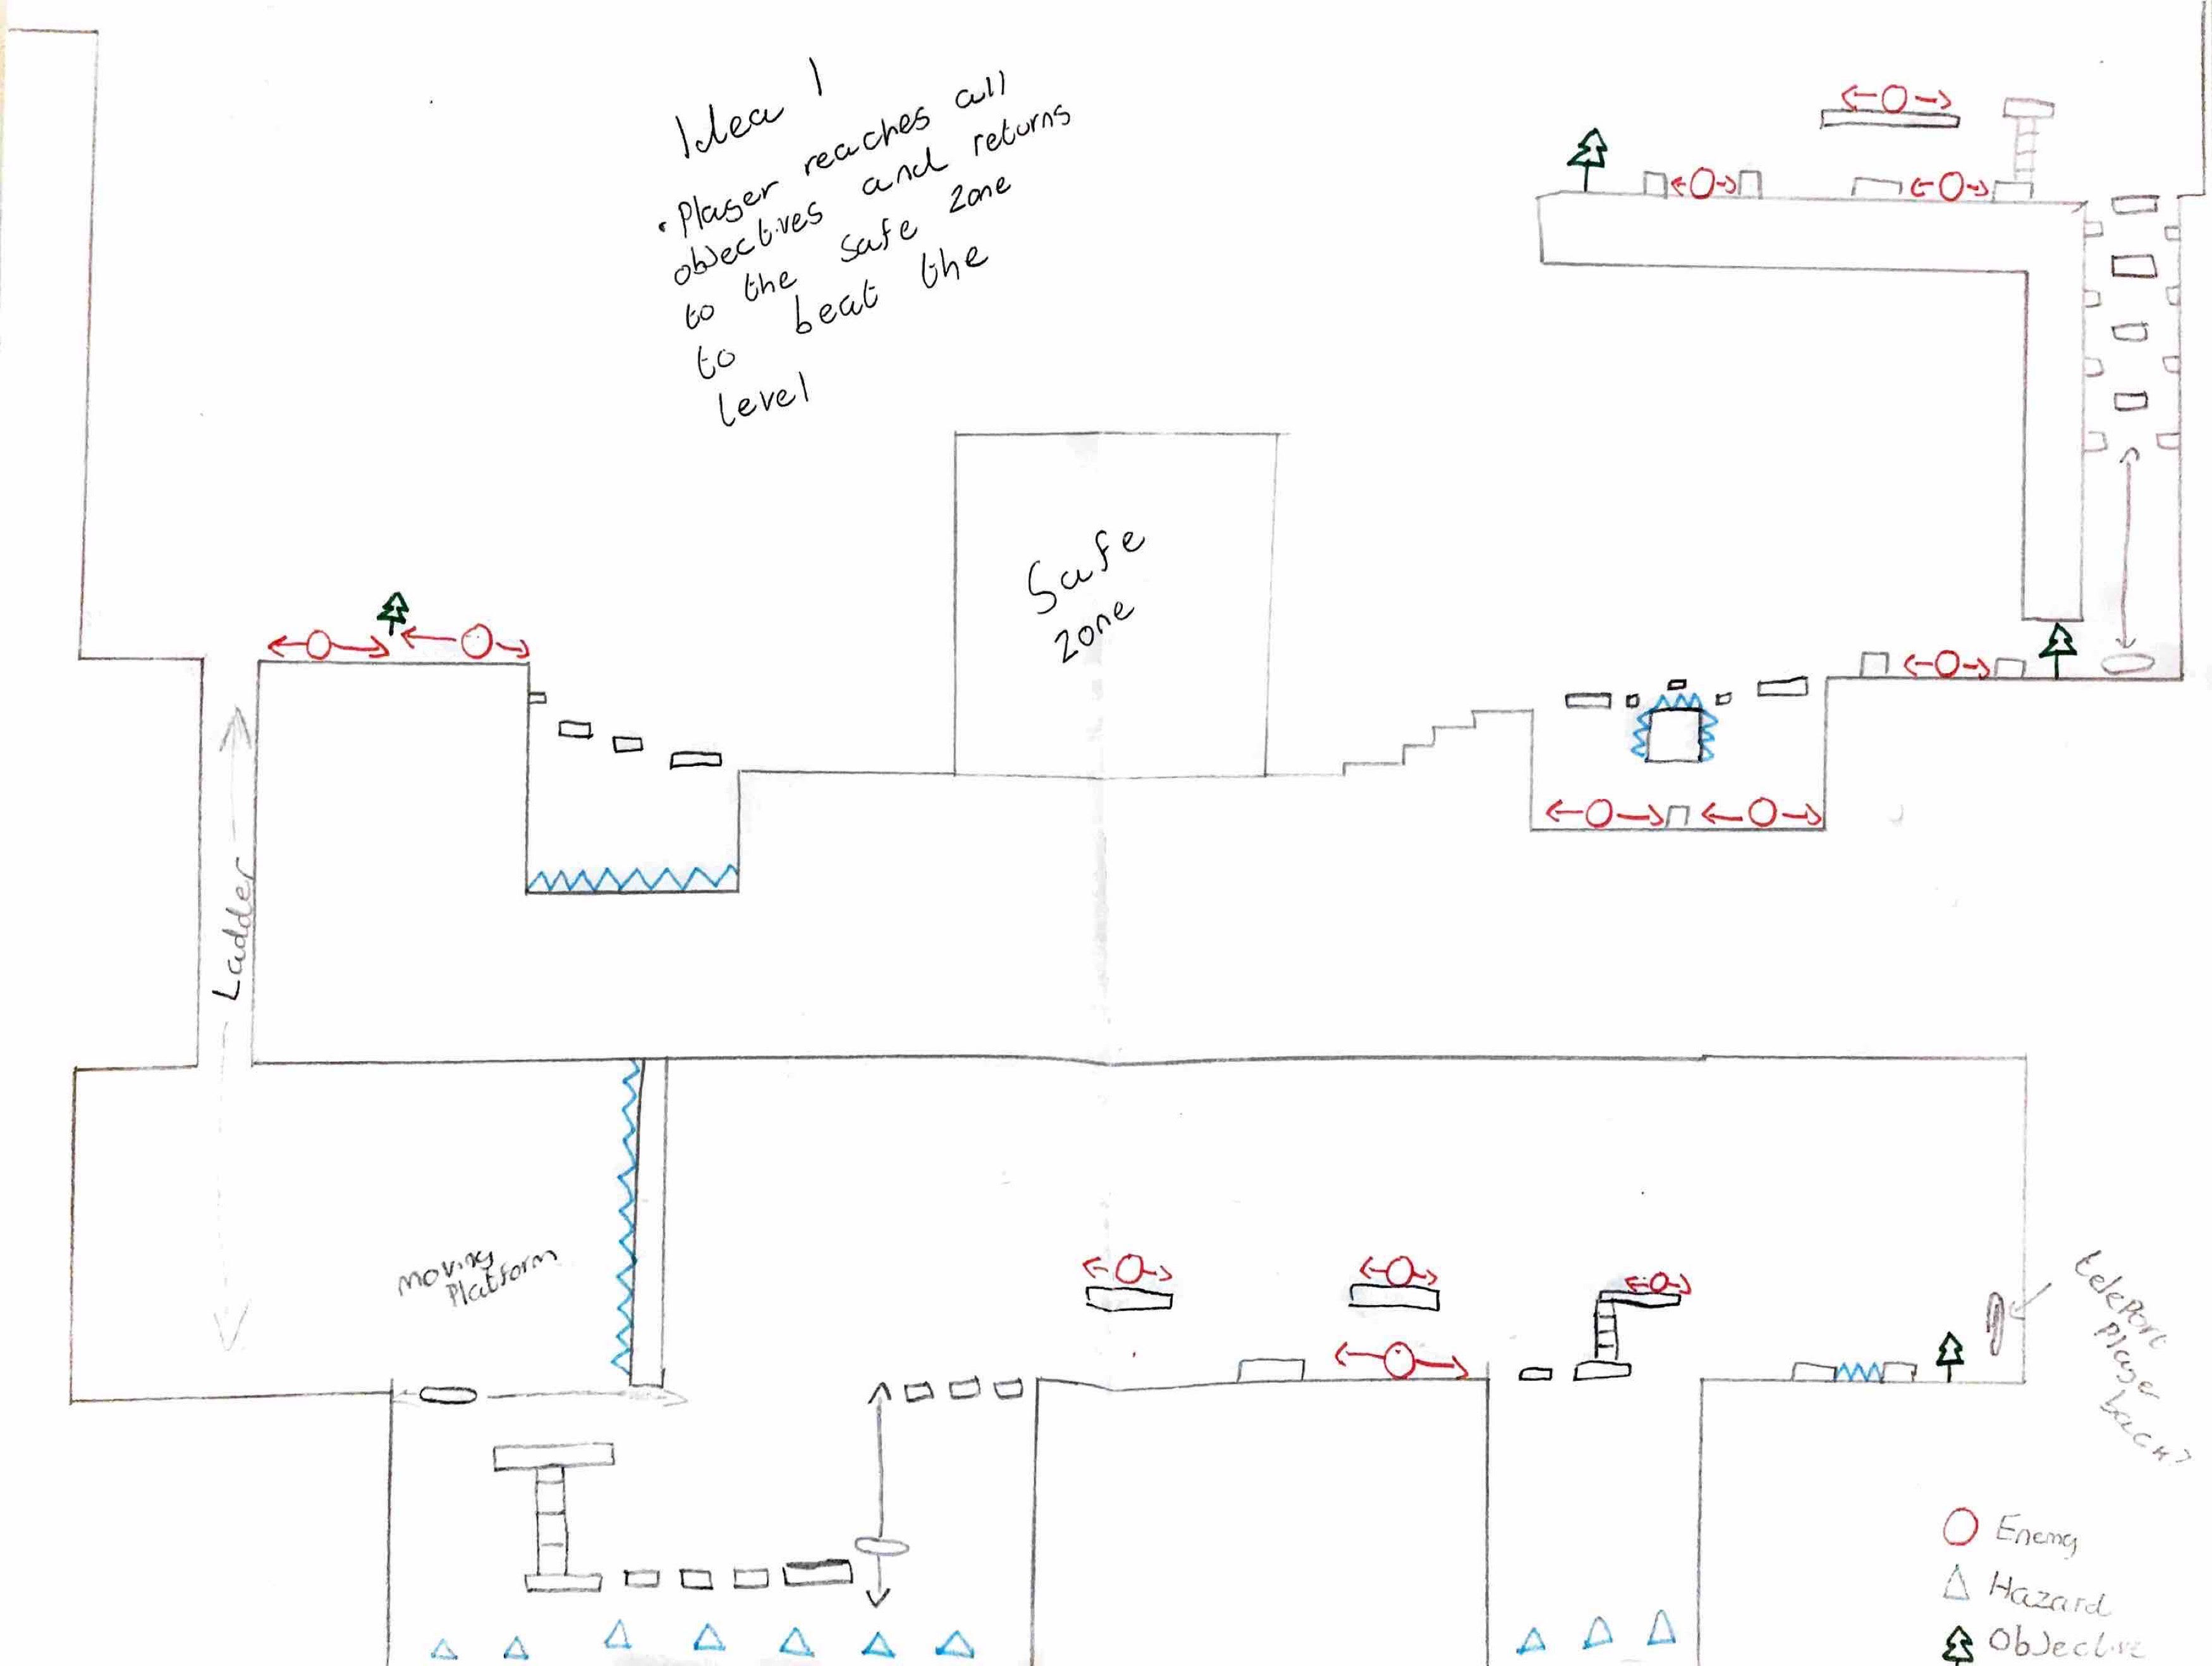 Idea 1
• Player reaches all
objectives and returns
to the safe zone
to beat the
level
Safe
zone
Ladder
moving
Platform
teleport
Player
back?
Enemy
Hazard
Objective